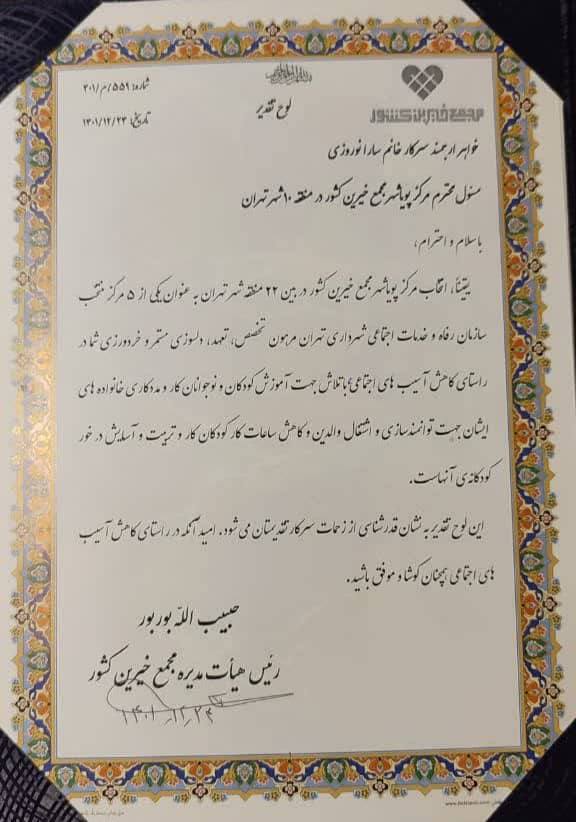 مجمع خیرین کشور
شماره: ۵۵۹/م/۴۰۱
تاریخ: ۱۴۰۱/۱۲/۲۳
لوح تقدیر
خواهر ارجمند سرکار خانم سارا نوروزی
مسئول محترم مرکز پویاشهر مجمع خیرین کشور در منطقه ۱۰ شهر تهران
با سلام و احترام،
یقیناً، انتخاب مرکز پویاشهر مجمع خیرین کشور در بین ۲۲ منطقه شهر تهران به عنوان یکی از ۵ مرکز منتخب
سازمان رفاه و خدمات اجتماعی شهرداری تهران مرهون تخصص، تعهد، دلسوزی مستمر و خردورزی شما در
راستای کاهش آسیب های اجتماعی؛ با تلاش جهت آموزش کودکان و نوجوانان کار و مددکاری خانواده های
ایشان جهت توانمندسازی و اشتغال والدین و کاهش ساعات کار کودکان کار و تربیت و آسایش در خور
کودکانه‌ی آنهاست.
این لوح تقدیر به نشان قدرشناسی از زحمات سرکار تقدیمتان می شود. امید آنکه در راستای کاهش آسیب
های اجتماعی همچنان کوشا و موفق باشید.
حبیب اللّه بوربور
رئیس هیأت مدیره مجمع خیرین کشور
۱۴۰۱_۱۲_۲۳